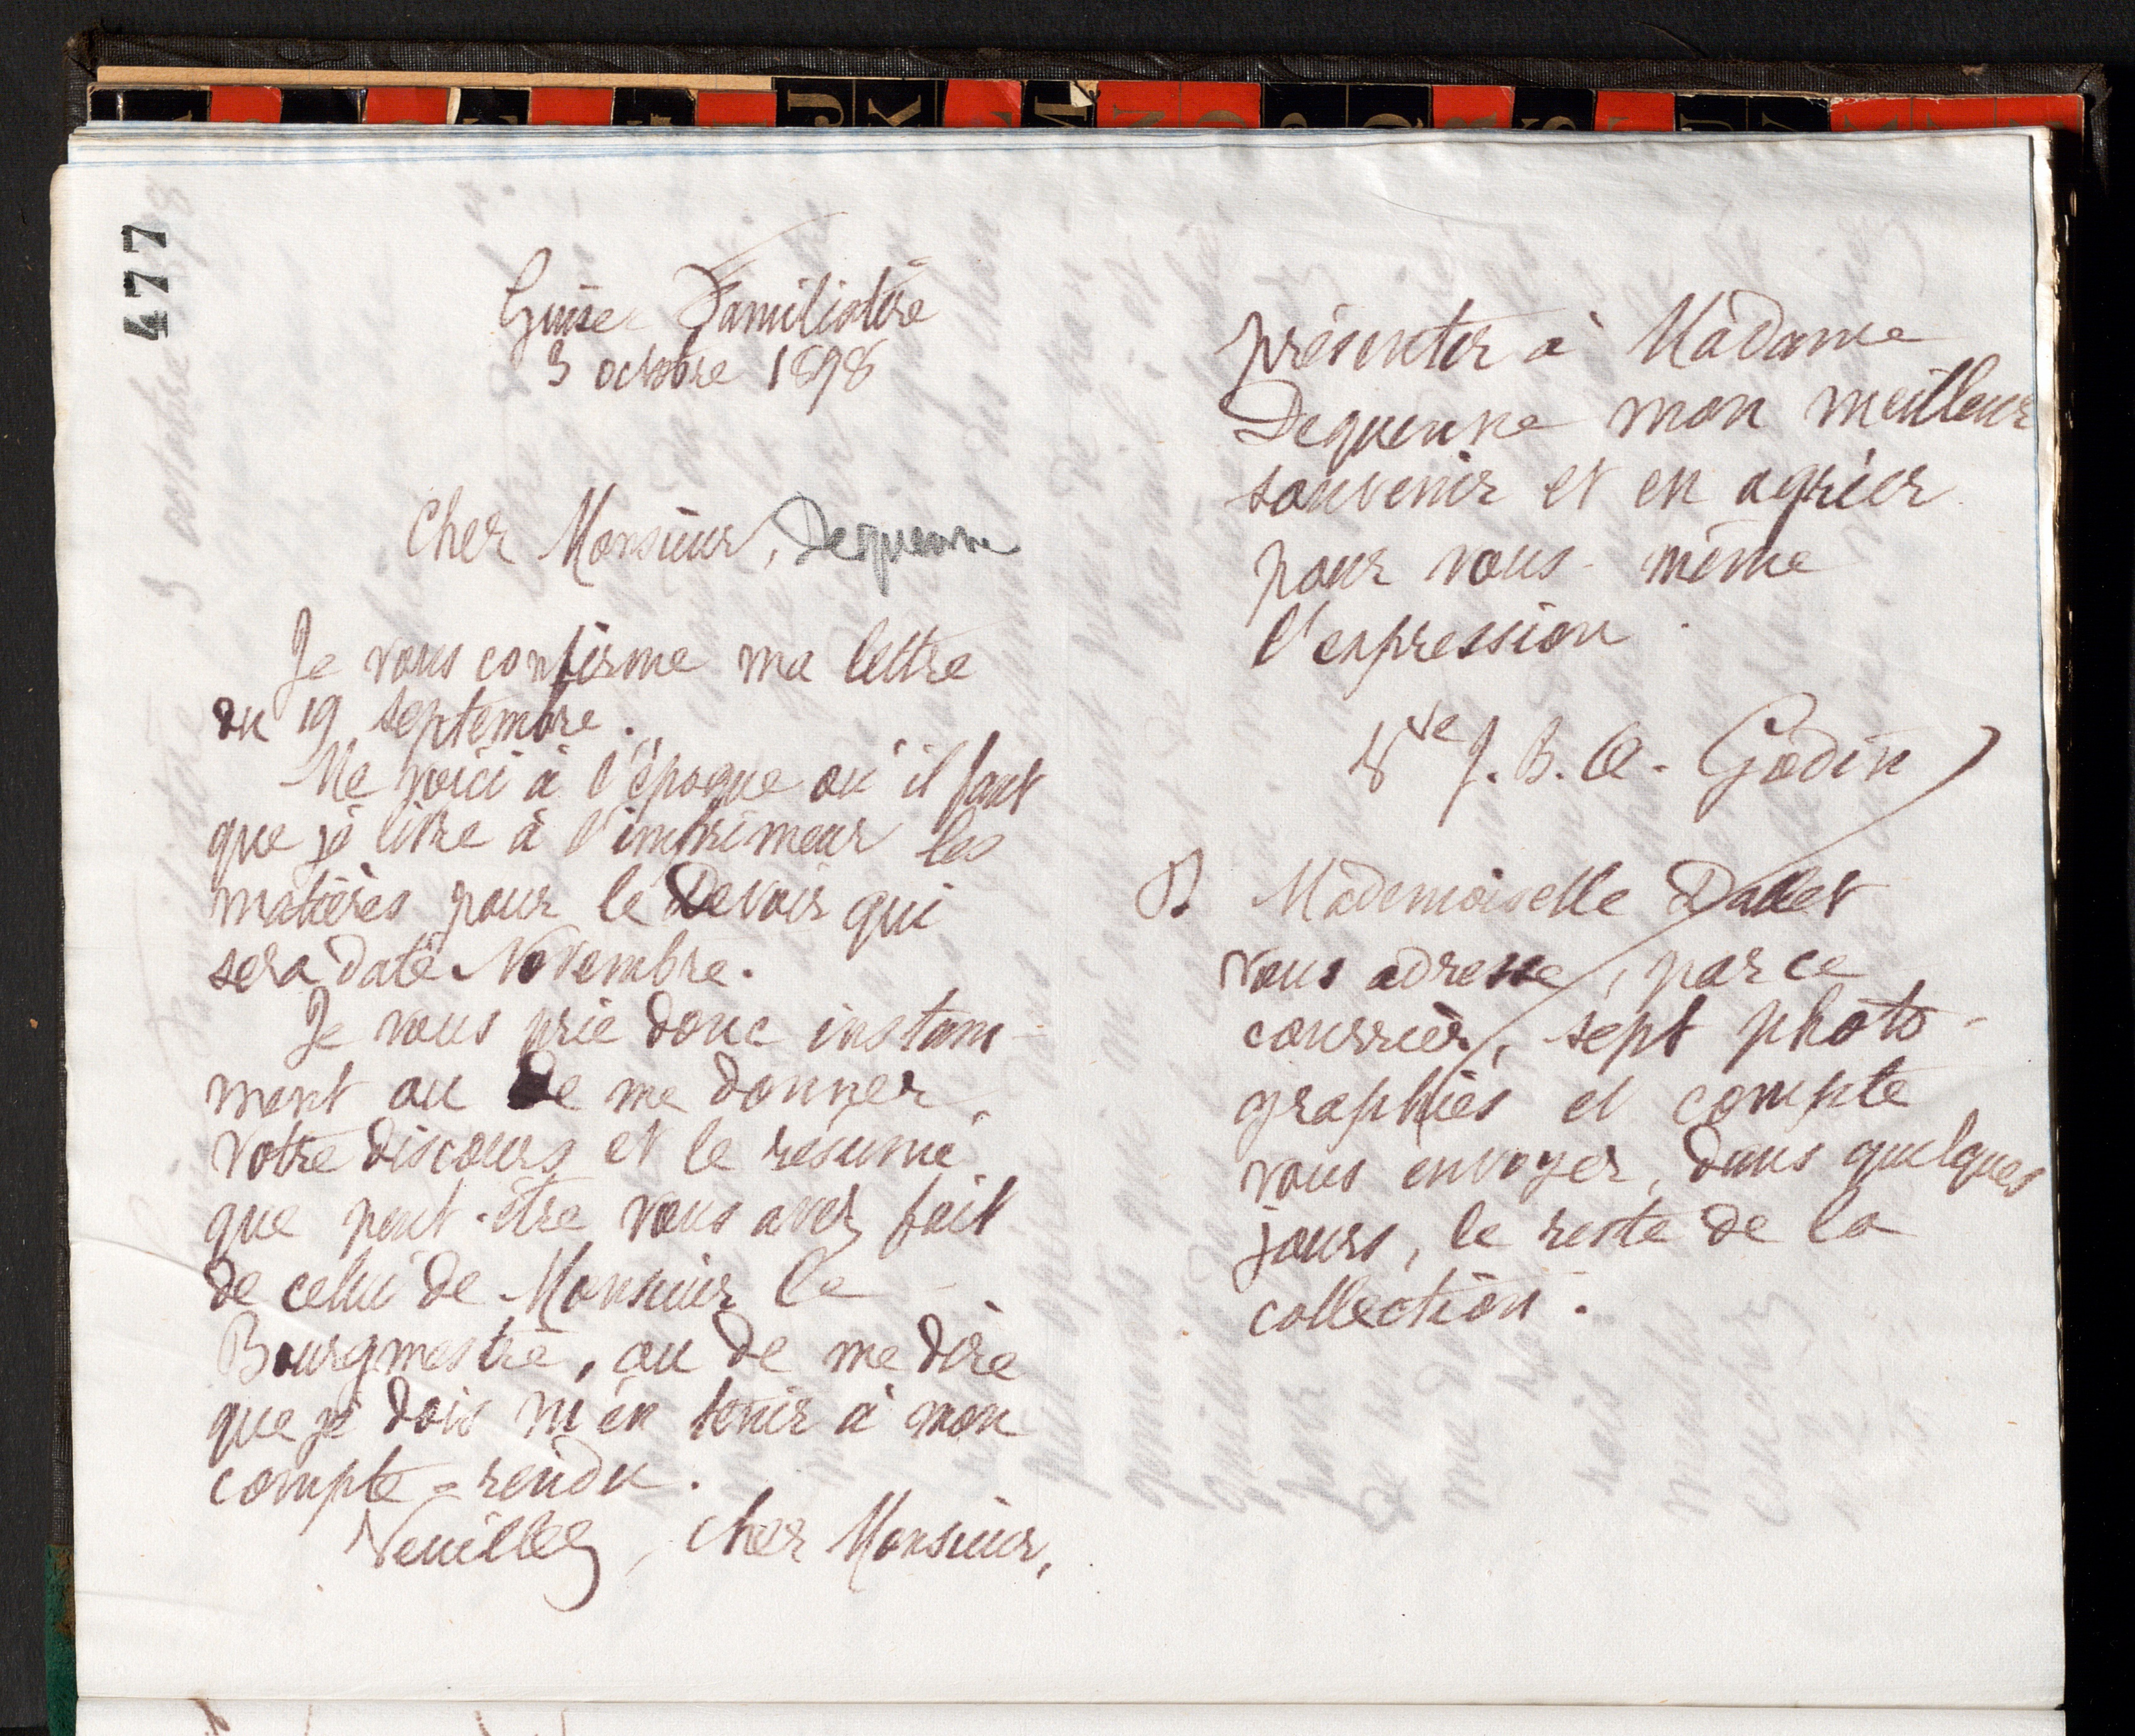 477
Guise Familistère
3 octobre 1898
Cher Monsieur, Dequenne
Je vous confirme ma lettre
du 19 septembre.
Me voici à l'époque où il faut
que je livre à l'imprimeur les
matières pour le Devoir qui
sera daté Novembre.
Je vous prie donc instam-
ment ou de me donner
votre discours et le résumé
que peut-être vous avez fait
de celui de Monsieur le
Bourgmestre, ou de me dire
que je dois m'en tenir à mon
compte-rendu.
Veuillez, cher Monsieur,
présenter à Madame
Dequenne mon meilleur
souvenir et en agréer
pour vous-même
l'expression.
Vve J. B. A. Godin
P. Mademoiselle Dallet
vous adresse, par ce
courrier, sept photo-
graphies et compte
vous envoyer, dans quelques
jours, le reste de la
collection.
J
K
L
M
N
O
P
Q
R
S
T
U
V